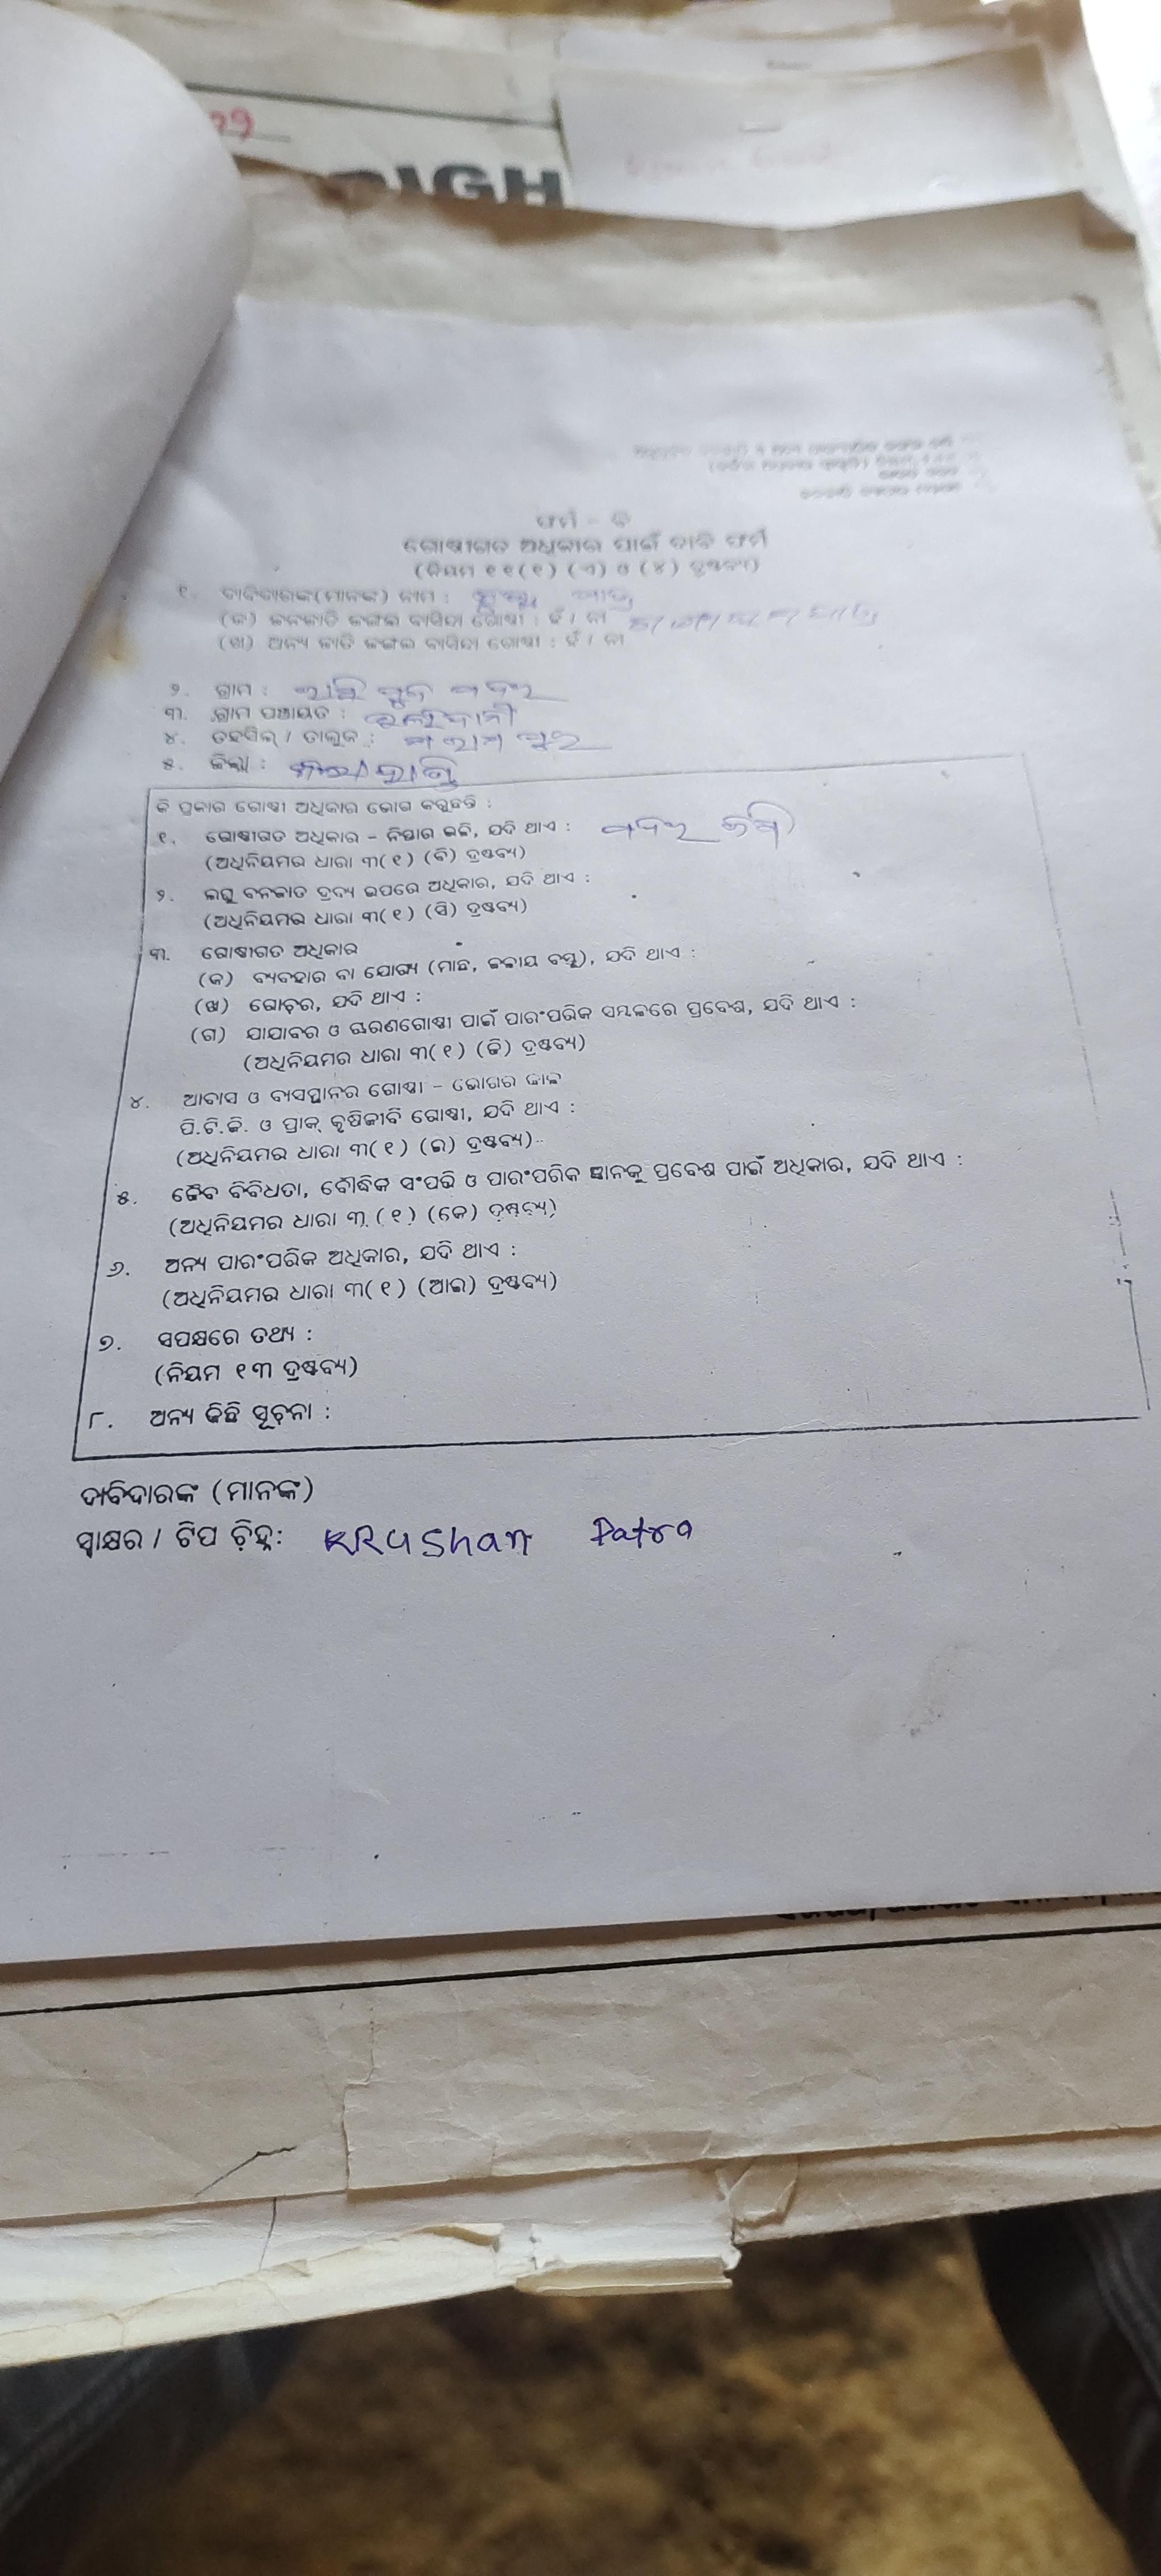 29
RIGH
ଫର୍ମ - ବି
ଗୋଷ୍ଠୀଗତ ଅଧିକାର ପାଇଁ ଦାବି ଫର୍ମ
(ନିୟମ ୧୧(୧) (ଏ) ଓ (୪) ଦ୍ରଷ୍ଟବ୍ୟ)
୧. ଦାବିଦାରଙ୍କ(ମାନଙ୍କ) ନାମ :
(କ) ଜନଜାତି ଜଙ୍ଗଲ ବାସିନ୍ଦା ଗୋଷ୍ଠୀ : ହଁ / ନା
(ଖ) ଅନ୍ୟ ଜାତି ଜଙ୍ଗଲ ବାସିନ୍ଦା ଗୋଷ୍ଠୀ : ହଁ / ନା
୨. ଗ୍ରାମ :
୩. ଗ୍ରାମ ପଞ୍ଚାୟତ :
୪. ତହସିଲ୍ / ତାଲୁକ :
୫. ଜିଲ୍ଲା : କଳାହାଣ୍ଡି
କି ପ୍ରକାର ଗୋଷ୍ଠୀ ଅଧିକାର ଭୋଗ କରୁଛନ୍ତି :
୧. ଗୋଷ୍ଠୀଗତ ଅଧିକାର - ନିସ୍ତାର ଭଳି, ଯଦି ଥାଏ :
(ଅଧିନିୟମର ଧାରା ୩(୧) (ବି) ଦ୍ରଷ୍ଟବ୍ୟ)
୨. ଲଘୁ ବନଜାତ ଦ୍ରବ୍ୟ ଉପରେ ଅଧିକାର, ଯଦି ଥାଏ :
(ଅଧିନିୟମର ଧାରା ୩(୧) (ସି) ଦ୍ରଷ୍ଟବ୍ୟ)
୩. ଗୋଷ୍ଠୀଗତ ଅଧିକାର
(କ) ବ୍ୟବହାର ବା ଯୋଗ୍ୟ (ମାଛ, ଜଳୀୟ ବସ୍ତୁ), ଯଦି ଥାଏ :
(ଖ) ଗୋଚର, ଯଦି ଥାଏ :
(ଗ) ଯାଯାବର ଓ ଚାରଣଗୋଷ୍ଠୀ ପାଇଁ ପାରଂପରିକ ସମ୍ଭଳରେ ପ୍ରବେଶ, ଯଦି ଥାଏ :
(ଅଧିନିୟମର ଧାରା ୩(୧) (ଜି) ଦ୍ରଷ୍ଟବ୍ୟ)
୪. ଆବାସ ଓ ବାସସ୍ଥାନର ଗୋଷ୍ଠୀ - ଭୋଗର କାଳ
ପି.ଟି.ଜି. ଓ ପ୍ରାକ୍ କୃଷିଜୀବି ଗୋଷ୍ଠୀ, ଯଦି ଥାଏ :
(ଅଧିନିୟମର ଧାରା ୩(୧) (ଇ) ଦ୍ରଷ୍ଟବ୍ୟ)
୫. ଜୈବ ବିବିଧତା, ବୌଦ୍ଧିକ ସଂପତ୍ତି ଓ ପାରଂପରିକ ଜ୍ଞାନକୁ ପ୍ରବେଶ ପାଇଁ ଅଧିକାର, ଯଦି ଥାଏ :
(ଅଧିନିୟମର ଧାରା ୩ (୧) (କେ) ଦ୍ରଷ୍ଟବ୍ୟ)
୬. ଅନ୍ୟ ପାରଂପରିକ ଅଧିକାର, ଯଦି ଥାଏ :
(ଅଧିନିୟମର ଧାରା ୩(୧) (ଆଇ) ଦ୍ରଷ୍ଟବ୍ୟ)
୭. ସପକ୍ଷରେ ତଥ୍ୟ :
(ନିୟମ ୧୩ ଦ୍ରଷ୍ଟବ୍ୟ)
୮. ଅନ୍ୟ କିଛି ସୂଚନା :
ଦାବିଦାରଙ୍କ (ମାନଙ୍କ)
ସ୍ୱାକ୍ଷର / ଟିପ ଚିହ୍ନ: KRUShan Patra